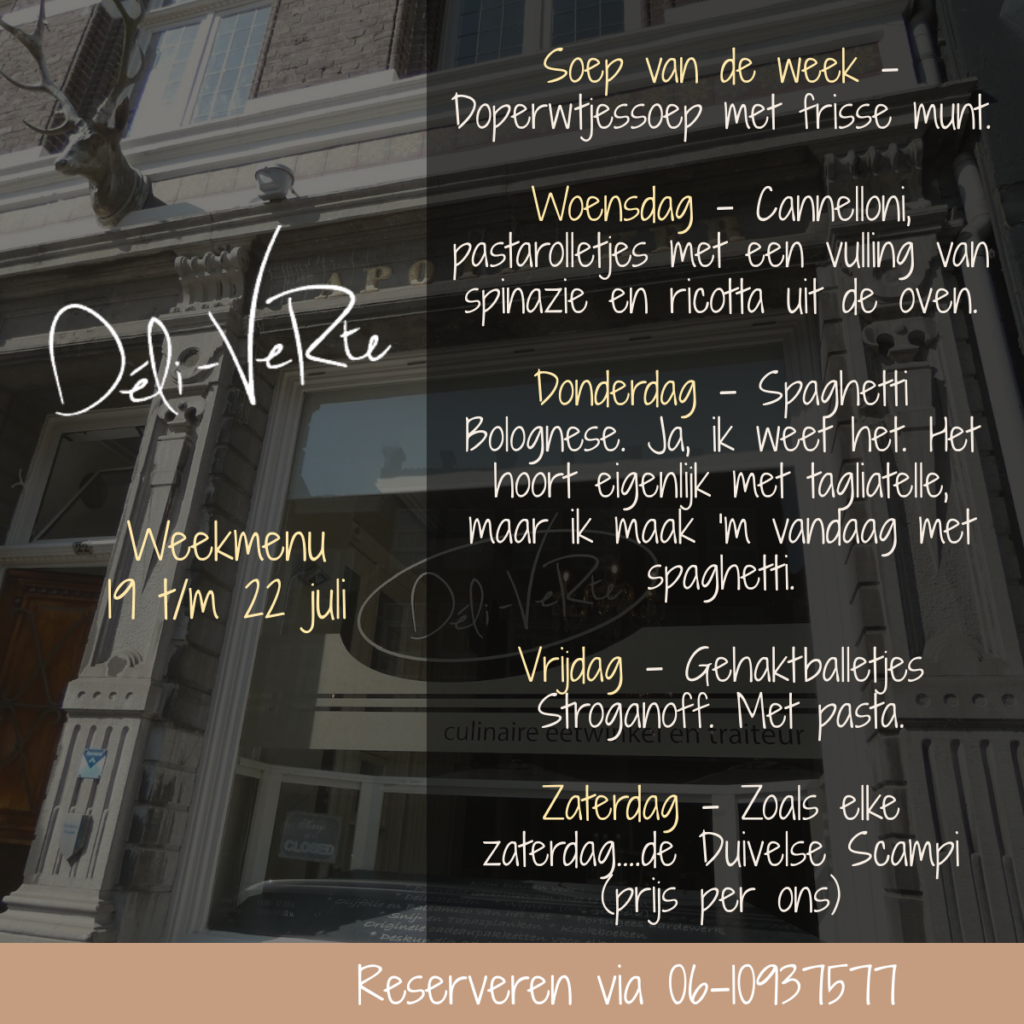 Déli-VeRte
Weekmenu
19 t/m 22 juli
Soep van de week -
Doperwtjessoep met frisse munt.
Woensdag - Cannelloni,
pastarolletjes met een vulling van
spinazie en ricotta uit de oven.
Donderdag - Spaghetti
Bolognese. Ja, ik weet het. Het
hoort eigenlijk met tagliatelle,
maar ik maak 'm vandaag met
spaghetti.
Vrijdag - Gehaktballetjes
Stroganoff. Met pasta.
Zaterdag - Zoals elke
zaterdag....de Duivelse Scampi
(prijs per ons)
Reserveren via 06-10937577
APO
Déli-VeRte
culinaire eetwinkel en traiteur
CLOSED